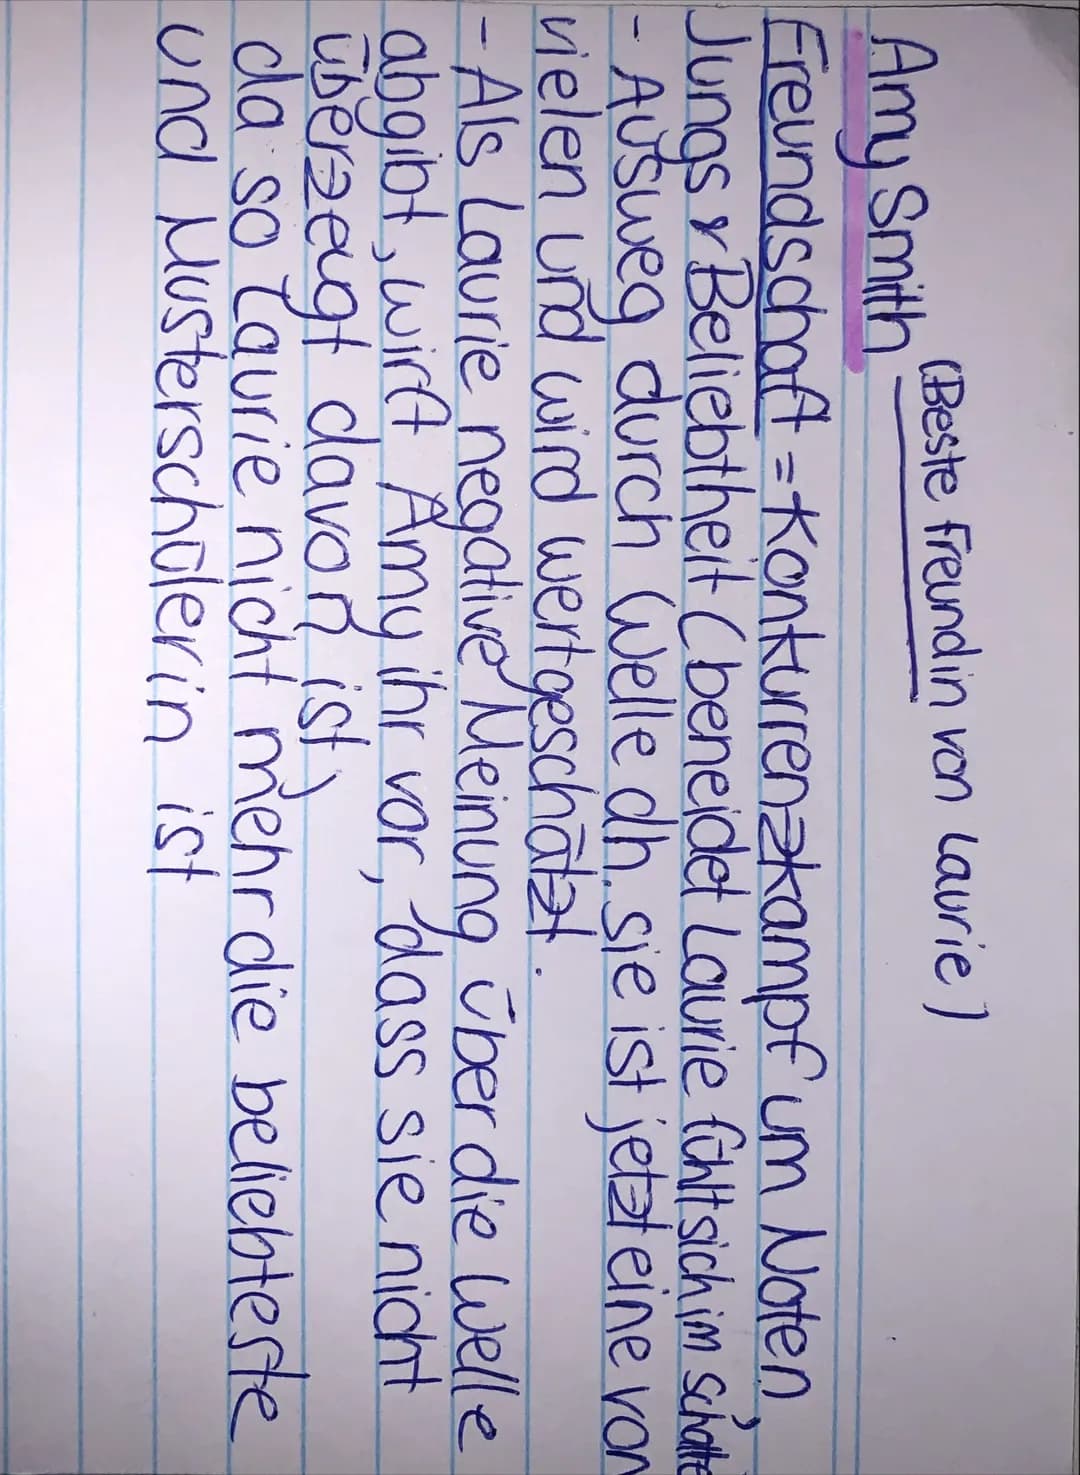 (Beste Freundin von Laurie)
Amy Smith
Freundschaft = Konkurrenzkampf um Noten,
Jungs & Beliebtheit (beneidet Laurie fühlt sich im schatte
- Ausweg durch Welle dh. sie ist jetzt eine von
vielen und wird wertgeschätzt.
- Als Laurie negative Meinung über die Welle
abgibt, wirft Amy ihr vor, dass sie nicht
überzeugt davon ist,
da so Laurie nicht mehr die beliebteste
und Musterschülerin ist